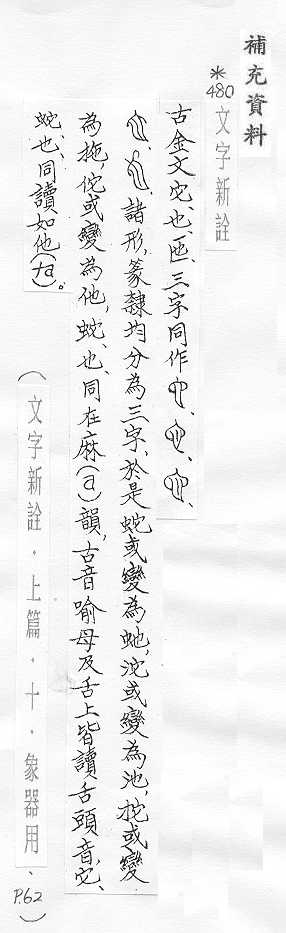 補充資料
*480文字新詮
古金文它、也、匜、三字同作、、、
、諸形,篆隸均分為三字,於是蛇或變為虵,沱或變為池,拕或變
為拖,佗或變為他,蛇、也、同在麻(a)韻,古音喻母及舌上皆讀舌頭音,它、
蛇、也、同讀如他(ta)。
(文字新詮.上篇.十.象器用、P.62)